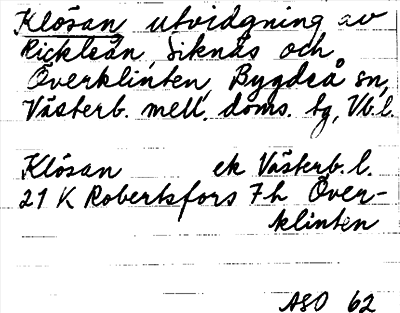 Klösan utvidgning av
Rickleån, Siknäs och
Överklinten, Bygdeå sn,
Västerb. mell. doms. tg, Vb.l.
Klösan ek Västerb. l.
21 K Robertsfors 7 h Över-
klinten
ASO 62